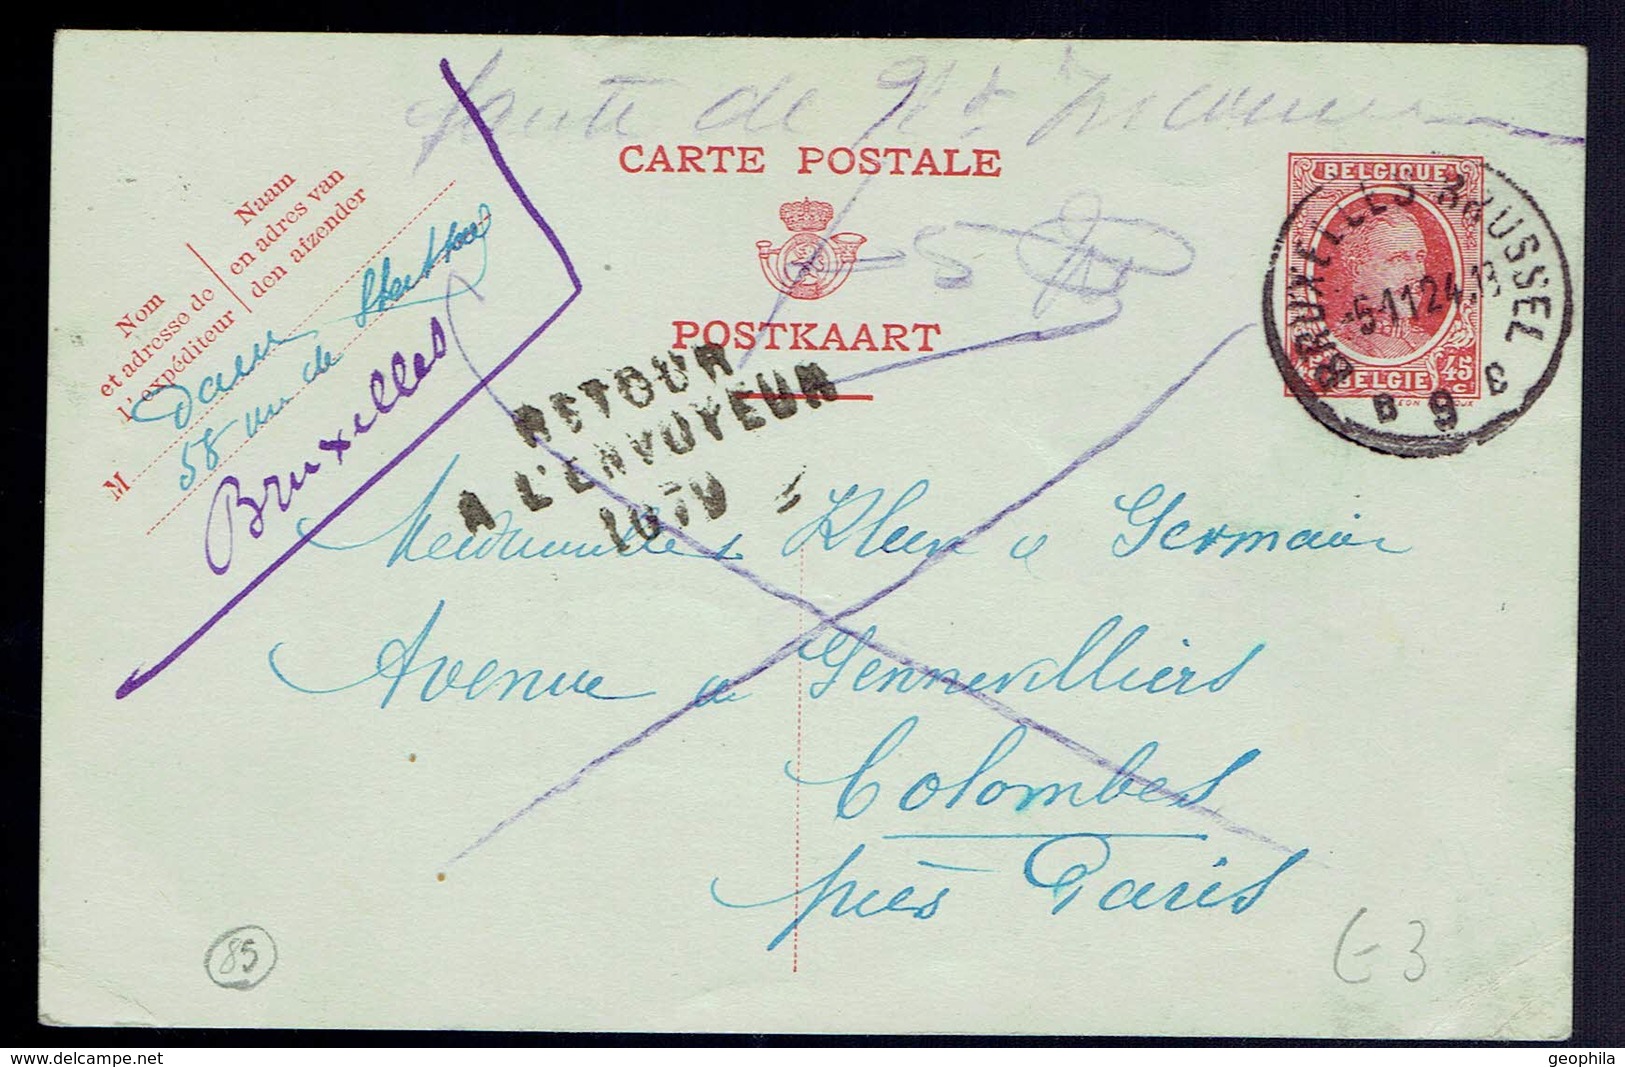 faute de N° Inconnu
CARTE POSTALE
POSTKAART
Nom
et adresse de
l'expéditeur
Naam
en adres van
den afzender
M
58 rue de
Bruxelles
BELGIQUE
45 c
BELGIE
BRUXELLES BRUSSEL
-5-11 24.
B 9 C
RETOUR
A L'ENVOYEUR
Mesdemoiselles Klein & Germain
Avenue de Gennevilliers
Colombes
près Paris
85
G-3
geophila